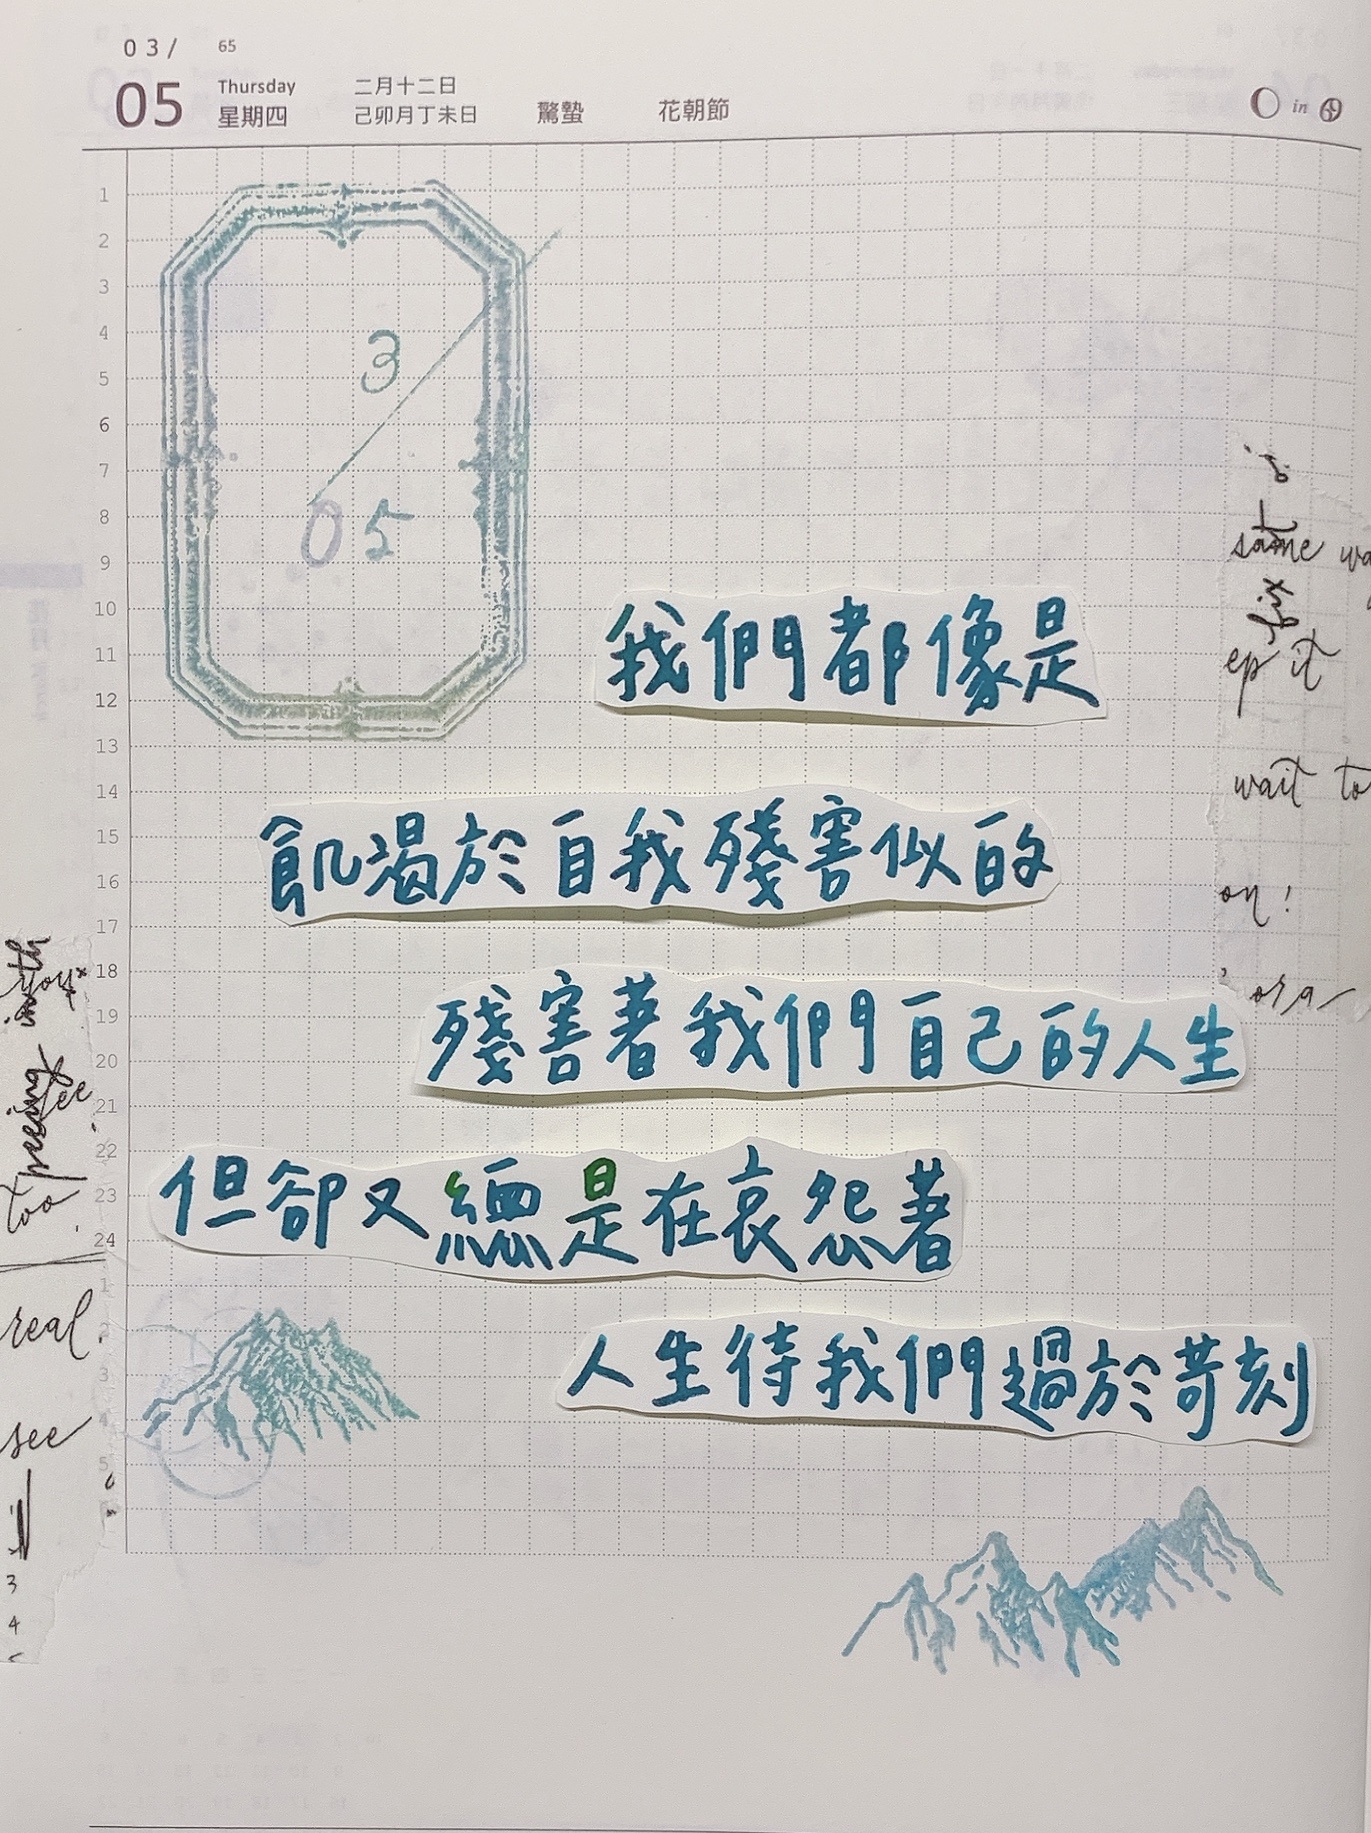 03/ 65
05 Thursday 二月十二日
星期四 己卯月丁未日 驚蟄 花朝節
in
1
2
3
4
5
6
7
8
9
10
11
12
13
14
15
16
17
18
19
20
21
22
23
24
1
2
3
4
5
3
05
我們都像是
飢渴於自我殘害似的
殘害著我們自己的人生
但卻又總是在哀怨著
人生待我們過於苛刻
same
ep it
wait to
on!
you
too
real.
see
3
4